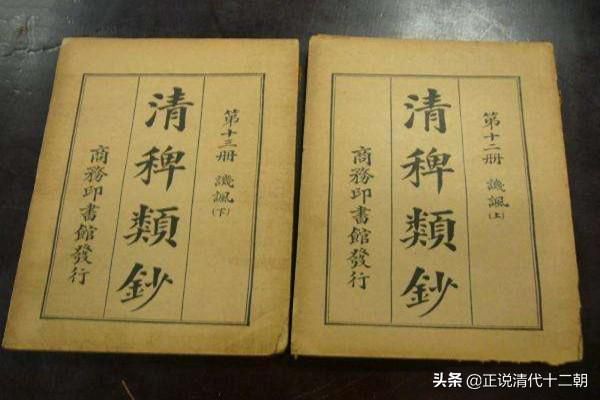 第十三册 譏諷(下)
清稗類鈔
商務印書館發行
第十二册 譏諷(上)
清稗類鈔
商務印書館發行
头条 @正说清代十二朝